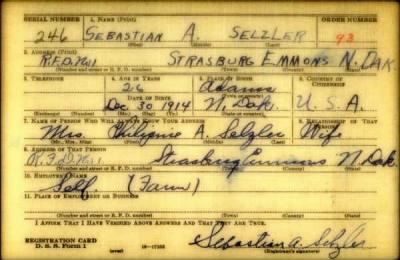 SERIAL NUMBER 1. NAME (Print) ORDER NUMBER
246 SEBASTIAN A. SELZLER 93
(First) (Middle) (Last)
2. ADDRESS (Print)
R.F.D. No 1 STRASBURG EMMONS N. DAK.
(Number and street or R. F. D. number) (Town) (County) (State)
3. TELEPHONE 4. AGE IN YEARS 5. PLACE OF BIRTH 6. COUNTRY OF CITIZENSHIP
26 Adams
DATE OF BIRTH (Town or county)
Dec. 30 1914 N. Dak. U. S. A.
(Mo.) (Day) (Yr.) (State or country)
7. NAME OF PERSON WHO WILL ALWAYS KNOW YOUR ADDRESS 8. RELATIONSHIP OF THAT PERSON
Mrs. A. Selzler Wife
(Mr., Mrs., Miss) (First) (Middle) (Last)
9. ADDRESS OF THAT PERSON
R.F.D. No 1 Strasburg Emmons N. Dak.
(Number and street or R. F. D. number) (Town) (County) (State)
10. EMPLOYER'S NAME
Self. (Farm)
11. PLACE OF EMPLOYMENT OR BUSINESS
(Number and street or R. F. D. number) (Town) (County) (State)
I AFFIRM THAT I HAVE VERIFIED ABOVE ANSWERS AND THAT THEY ARE TRUE.
REGISTRATION CARD
D. S. S. Form 1 (over) 16-17105 Sebastian A. Selzler
(Registrant's signature)